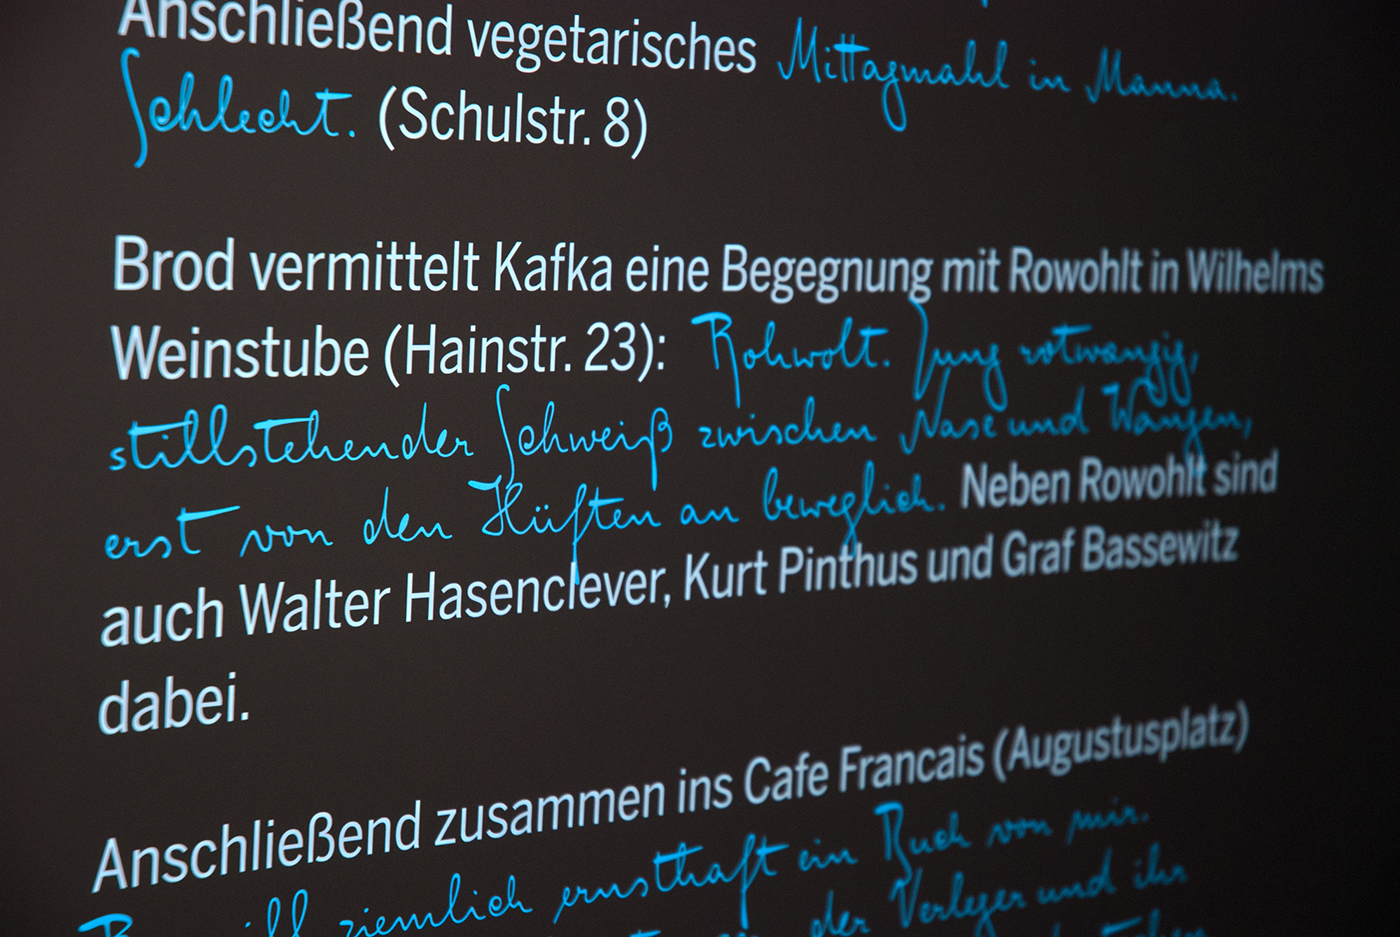 Anschließend vegetarisches Mittagmahl in Manna.
Schlecht. (Schulstr. 8)
Brod vermittelt Kafka eine Begegnung mit Rowohlt in Wilhelms
Weinstube (Hainstr. 23): Rohwolt. Jung rotwangig,
stillstehender Schweiß zwischen Nase und Wangen,
erst von den Hüften an beweglich. Neben Rowohlt sind
auch Walter Hasenclever, Kurt Pinthus und Graf Bassewitz
dabei.
Anschließend zusammen ins Cafe Francais (Augustusplatz)
ziemlich ernsthaft ein Buch von mir.
der Verleger und ihr